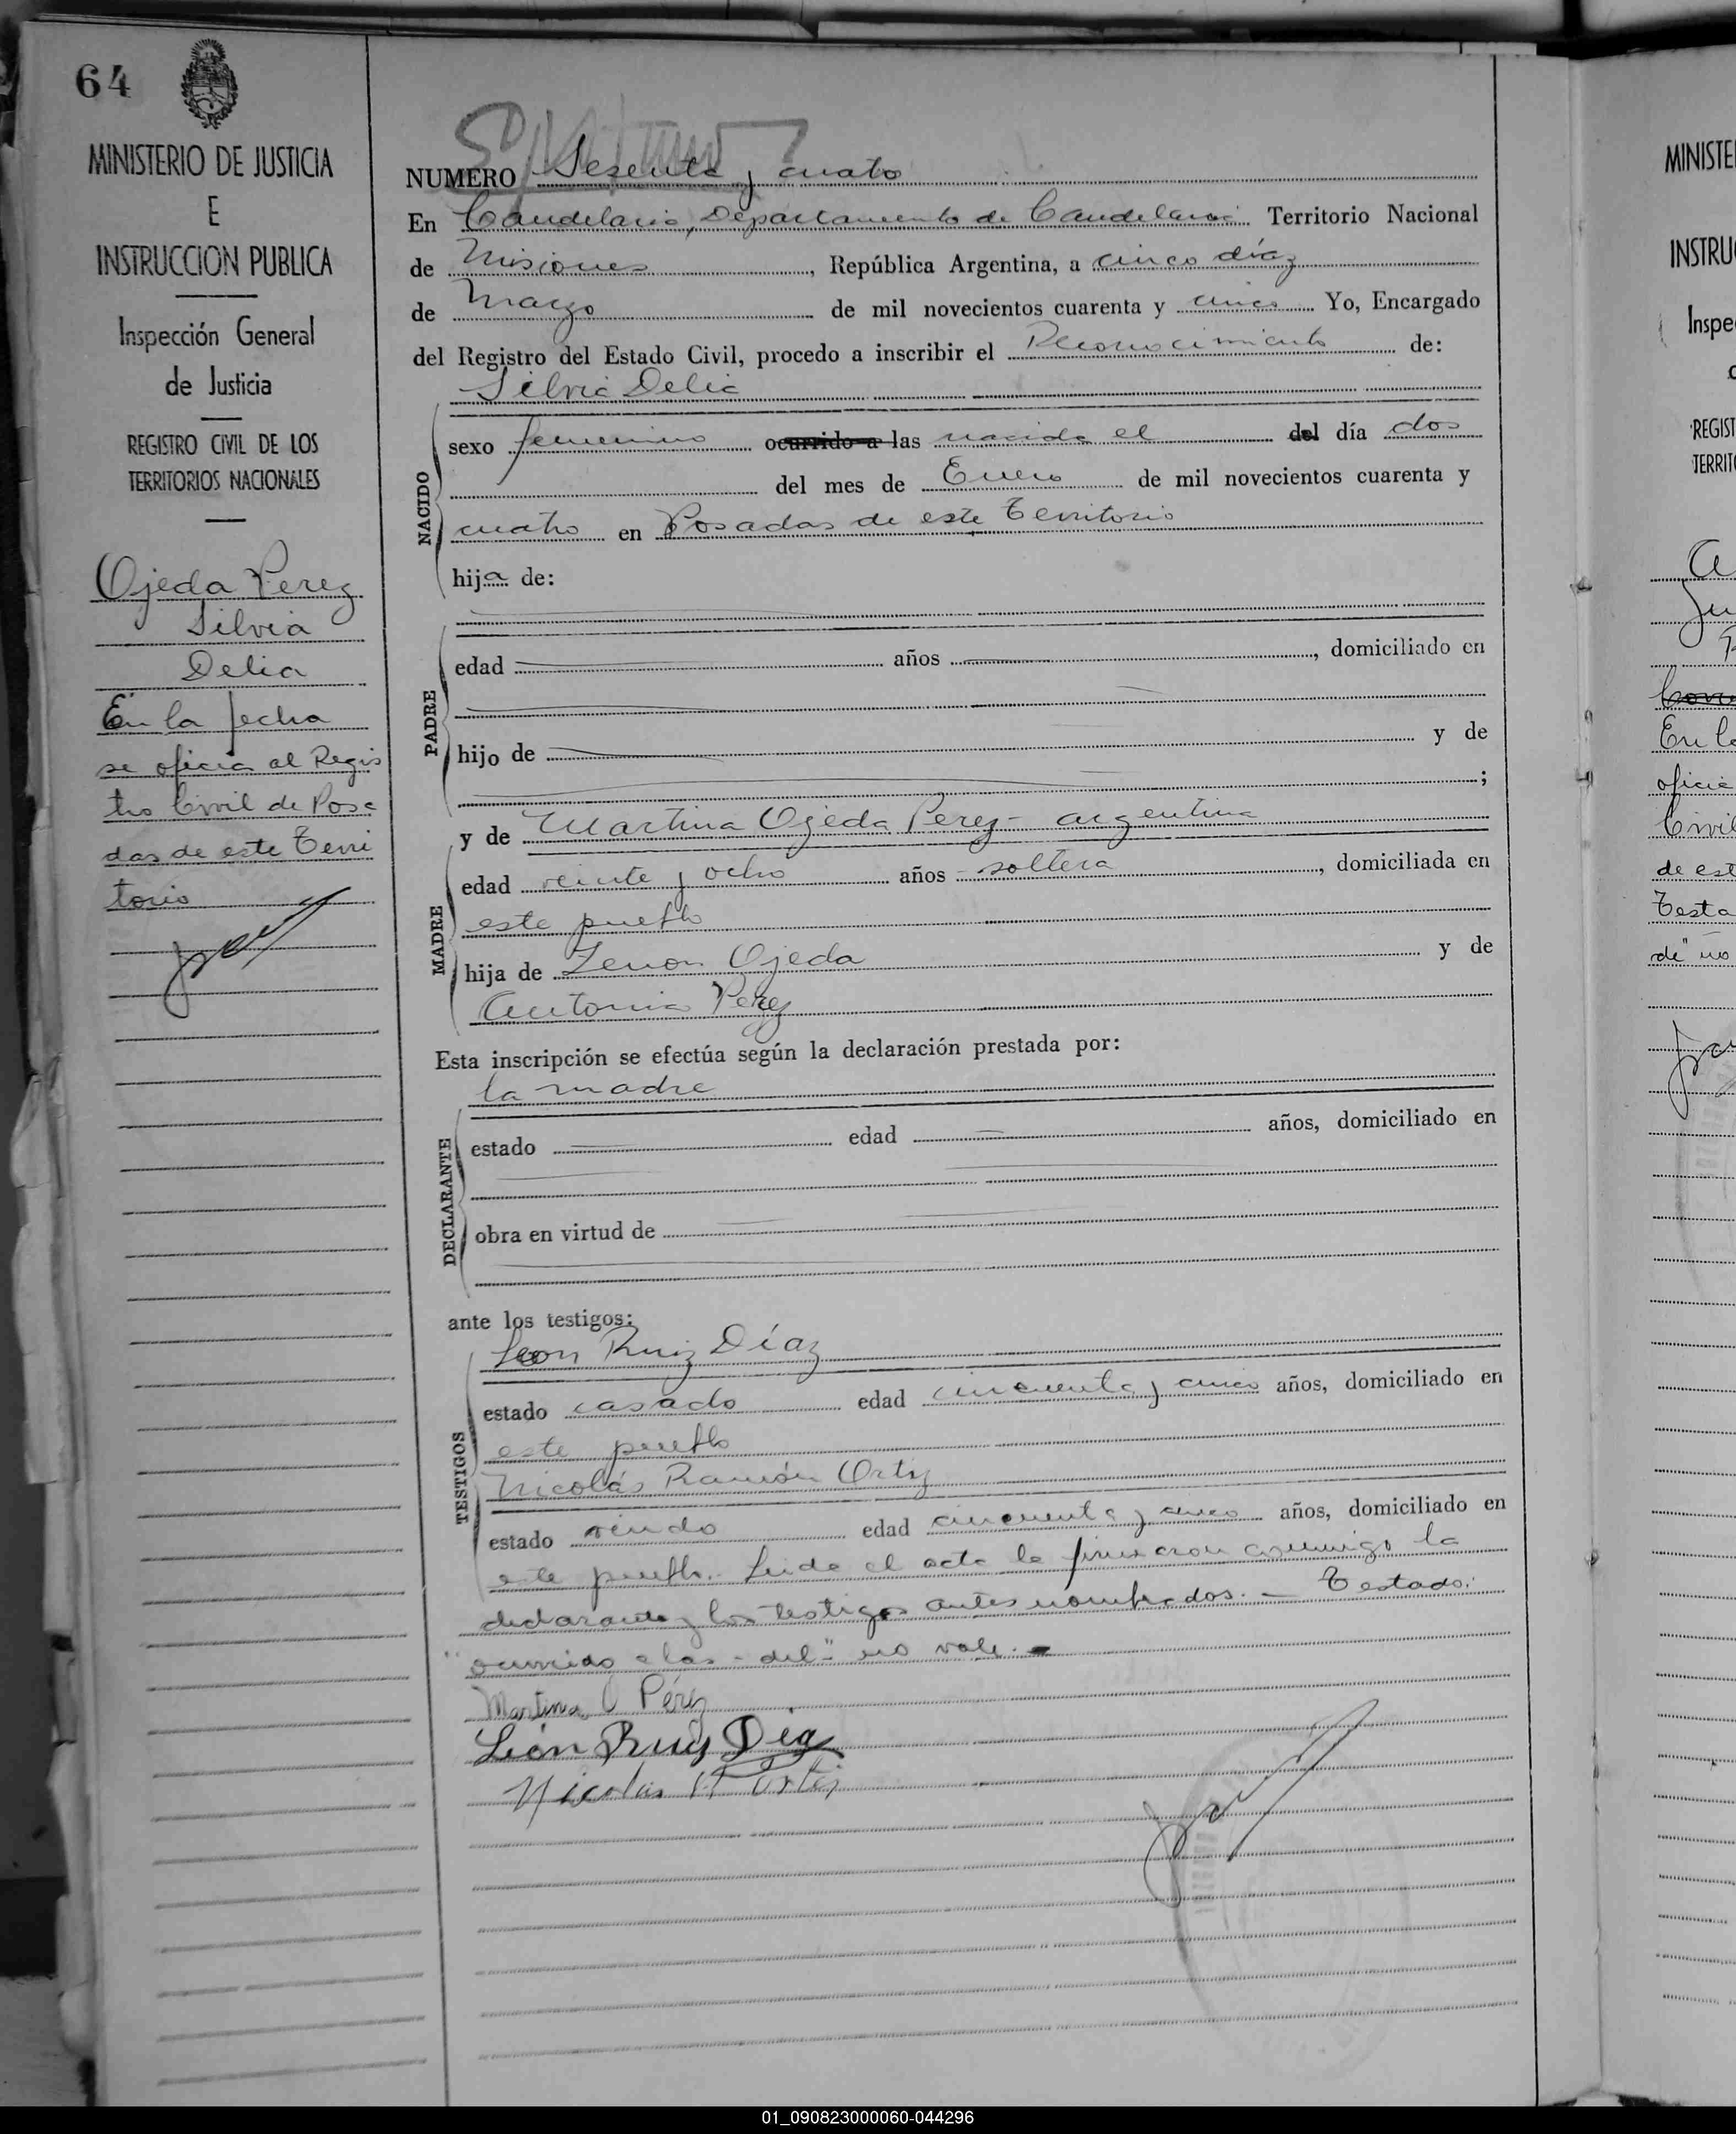 64
MINISTERIO DE JUSTICIA
E
INSTRUCCION PUBLICA
Inspección General
de Justicia
REGISTRO CIVIL DE LOS
TERRITORIOS NACIONALES
Ojeda Perez
Silvia
Delia
En la fecha
se oficia al Regis
tro Civil de Posa
das de este Terri
torio
NUMERO Sesenta y cuatro
En Candelaria, Departamento de Candelaria Territorio Nacional
de Misiones, República Argentina, a cinco días
de Marzo de mil novecientos cuarenta y cinco Yo, Encargado
del Registro del Estado Civil, procedo a inscribir el Reconocimiento de:
Silvia Delia
NACIDO
sexo femenino ocurrido a las nacida el del día dos
del mes de Enero de mil novecientos cuarenta y
cuatro en Posadas de este Territorio
hija de:
PADRE
edad años, domiciliado en
hijo de y de
;
y de Martina Ojeda Perez - argentina
MADRE
edad veinte y ocho años - soltera, domiciliada en
este pueblo
hija de Zenon Ojeda y de
Antonia Perez
Esta inscripción se efectúa según la declaración prestada por:
la madre
DECLARANTE
estado edad años, domiciliado en
obra en virtud de
ante los testigos:
Leon Ruiz Díaz
TESTIGOS
estado casado edad cincuenta y cinco años, domiciliado en
este pueblo
Nicolás Ramón Ortiz
estado viudo edad cincuenta y cinco años, domiciliado en
este pueblo. Leida el acta la firmaron conmigo la
declarante y los testigos antes nombrados. - Testado:
"ocurrido a las - del" no vale. -
Martina O Pérez
León Ruiz Diaz
Nicolas R Ortiz
MINISTE
INSTRU
Inspe
REGIST
TERRIT
En la
oficia
Civil
de est
Testa
de" no
01_090823000060-044296